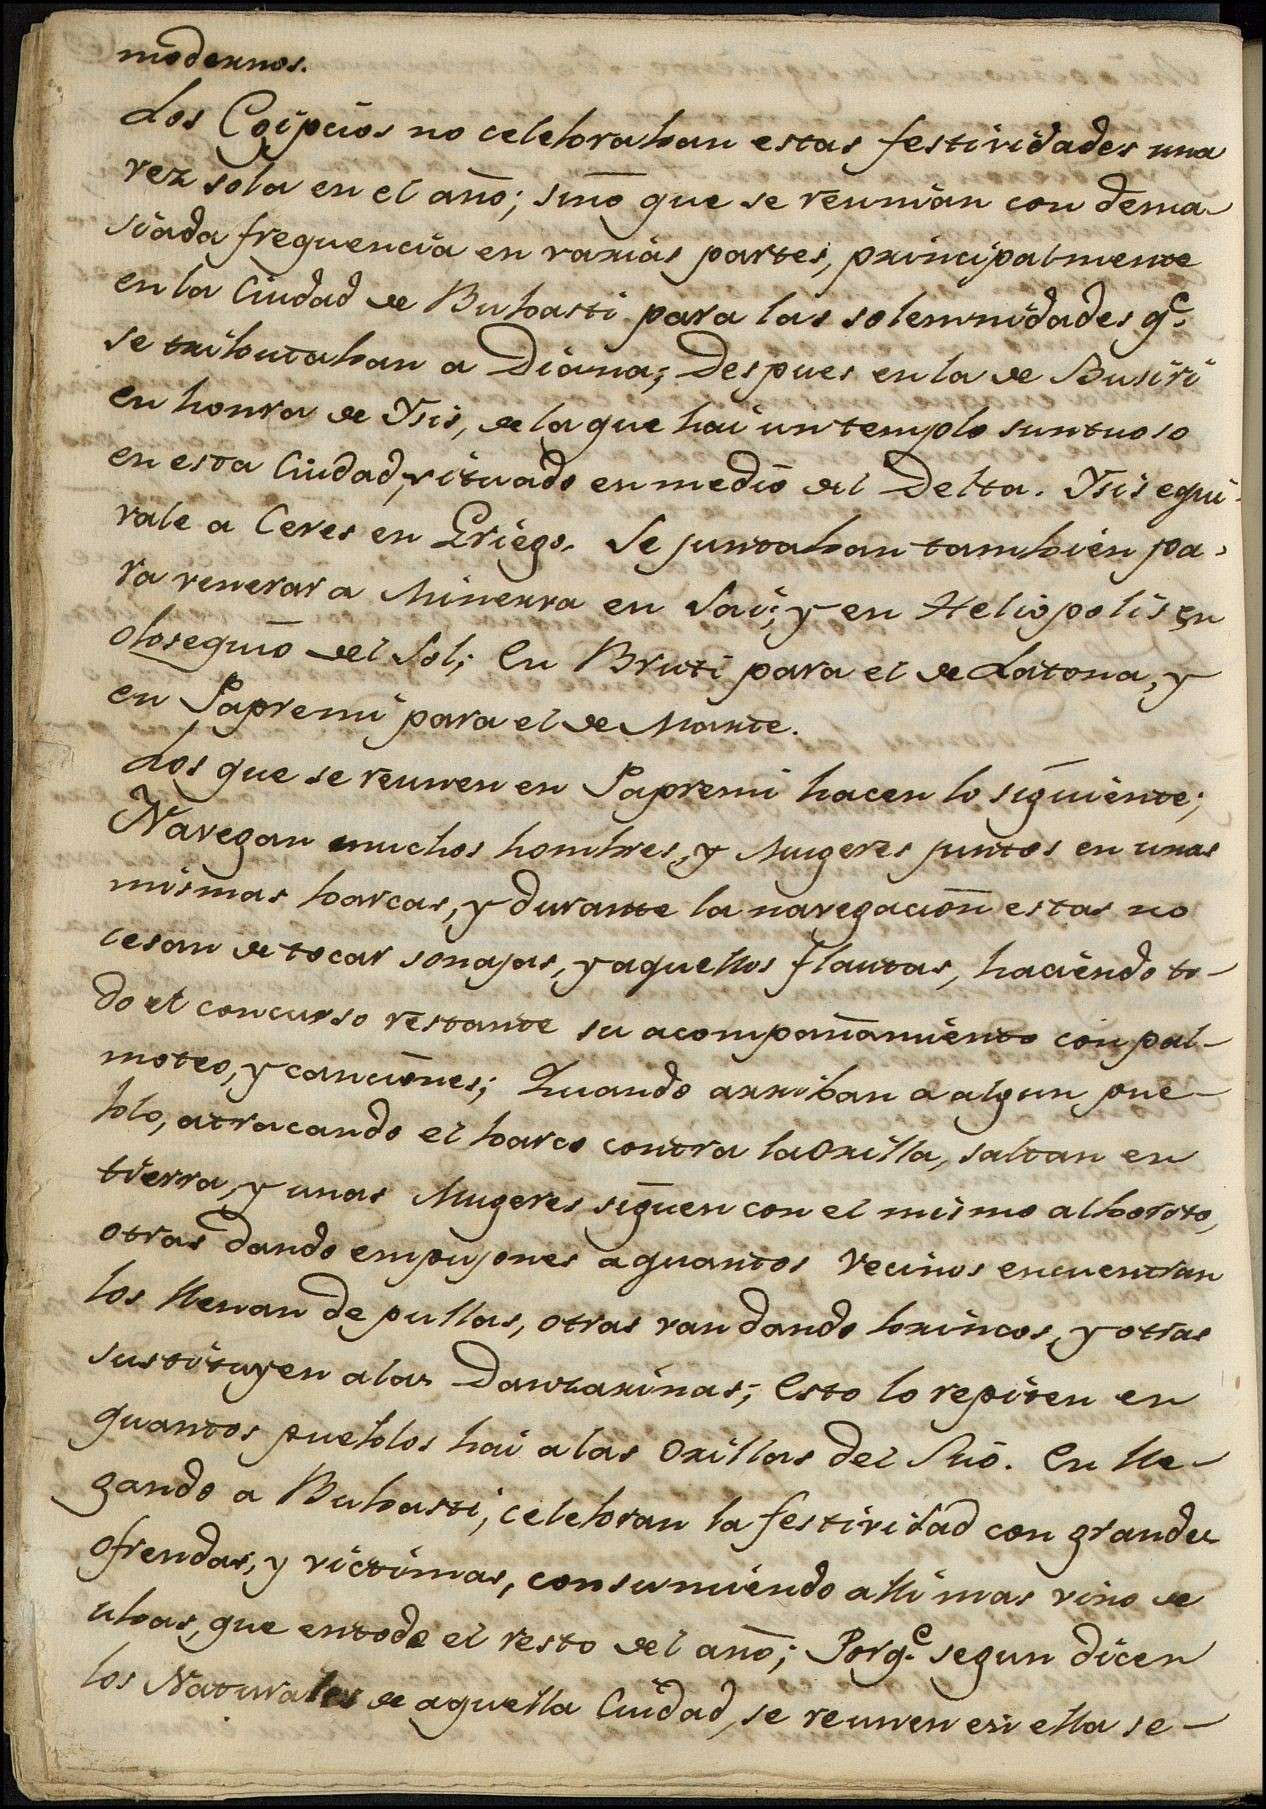 modernos.
Los Egipcios no celebraban estas festividades una
vez sola en el año; sino que se reunian con dema-
siada frequencia en varias partes, principalmente
en la Ciudad de Bubasti para las solemnidades q.e
se tributaban a Diana; Despues en la de Busiri
en honra de Ysis, de la que hai un templo suntuoso
en esta Ciudad, situado en medio del Delta. Ysis equi-
vale a Ceres en Griego. Se juntaban tambien pa-
ra venerar a Minerva en Sai; y en Heliopolis en
obsequio del Sol; En Bruti para el de Latona, y
en Papremi para el de Marte.
Los que se reunen en Papremi hacen lo siguiente;
Navegan muchos hombres, y Mugeres juntos en unas
mismas barcas, y durante la navegacion estas no
cesan de tocar sonajas, y aquellos flautas, haciendo to-
do el concurso restante su acompañamiento con pal-
moteo, y canciones; Quando arriban a algun pue-
blo, atracando el barco contra la orilla, saltan en
tierra, y unas Mugeres siguen con el mismo alboroto,
otras dando empujones a quantos vecinos encuentran
los llenan de pullas, otras van dando brincos, y otras
sustituyen a las Danzarinas; Esto lo repiten en
quantos pueblos hai a las orillas del Rio. En lle-
gando a Bubasti, celebran la festividad con grandes
ofrendas, y victimas, consumiendo alli mas vino de
ubas, que en todo el resto del año; Porq.e segun dicen
los Naturales de aquella Ciudad, se reunen en ella se-